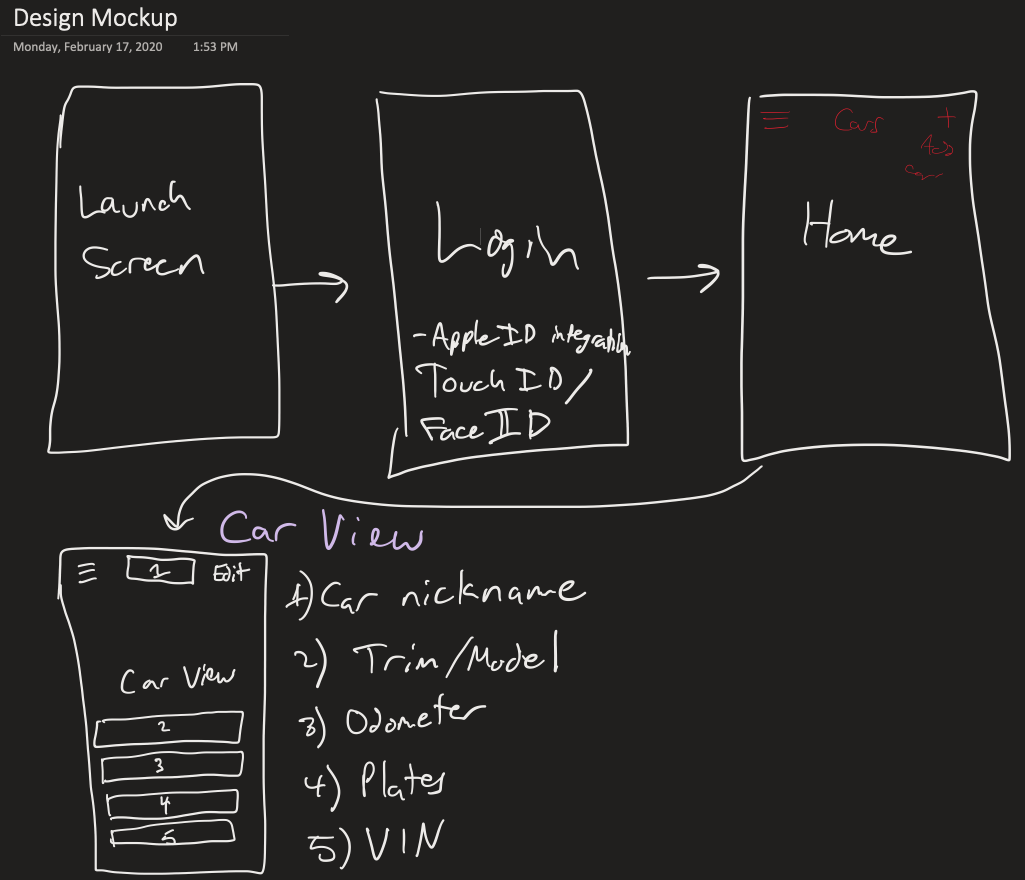 Design Mockup
Monday, February 17, 2020 1:53 PM
Launch
Screen
Login
- Apple ID integration
Touch ID /
Face ID
Cars +
Add
Car
Home
Car View
1 Edit
Car View
2
3
4
5
1) Car nickname
2) Trim/Model
3) Odometer
4) Plates
5) VIN